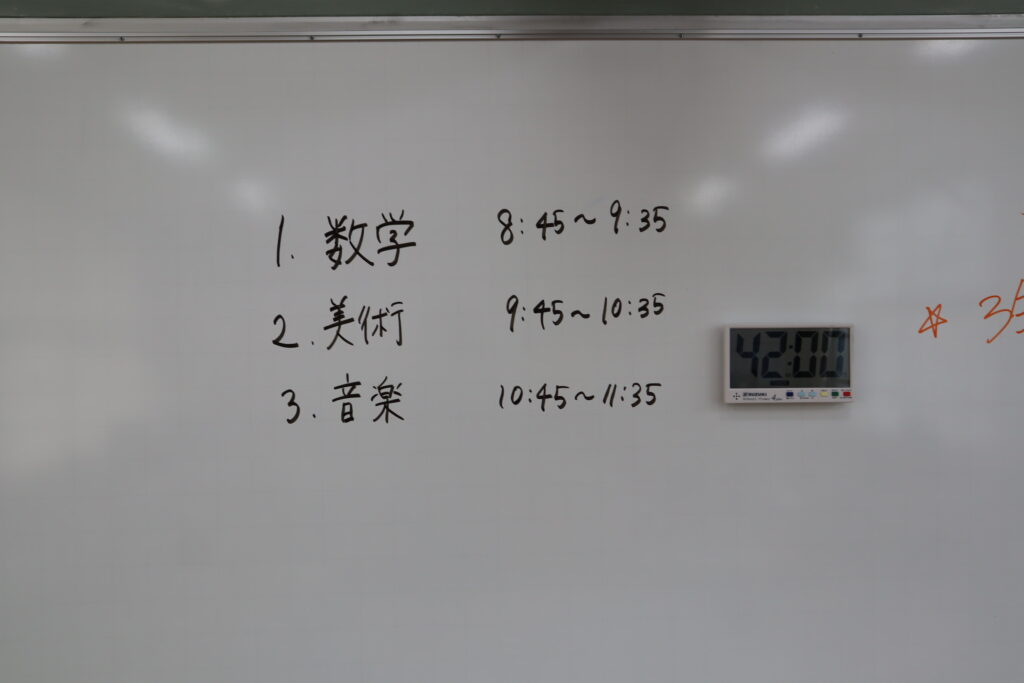 1. 数学 8:45～9:35
2. 美術 9:45～10:35
3. 音楽 10:45～11:35
42:00
☆ 35